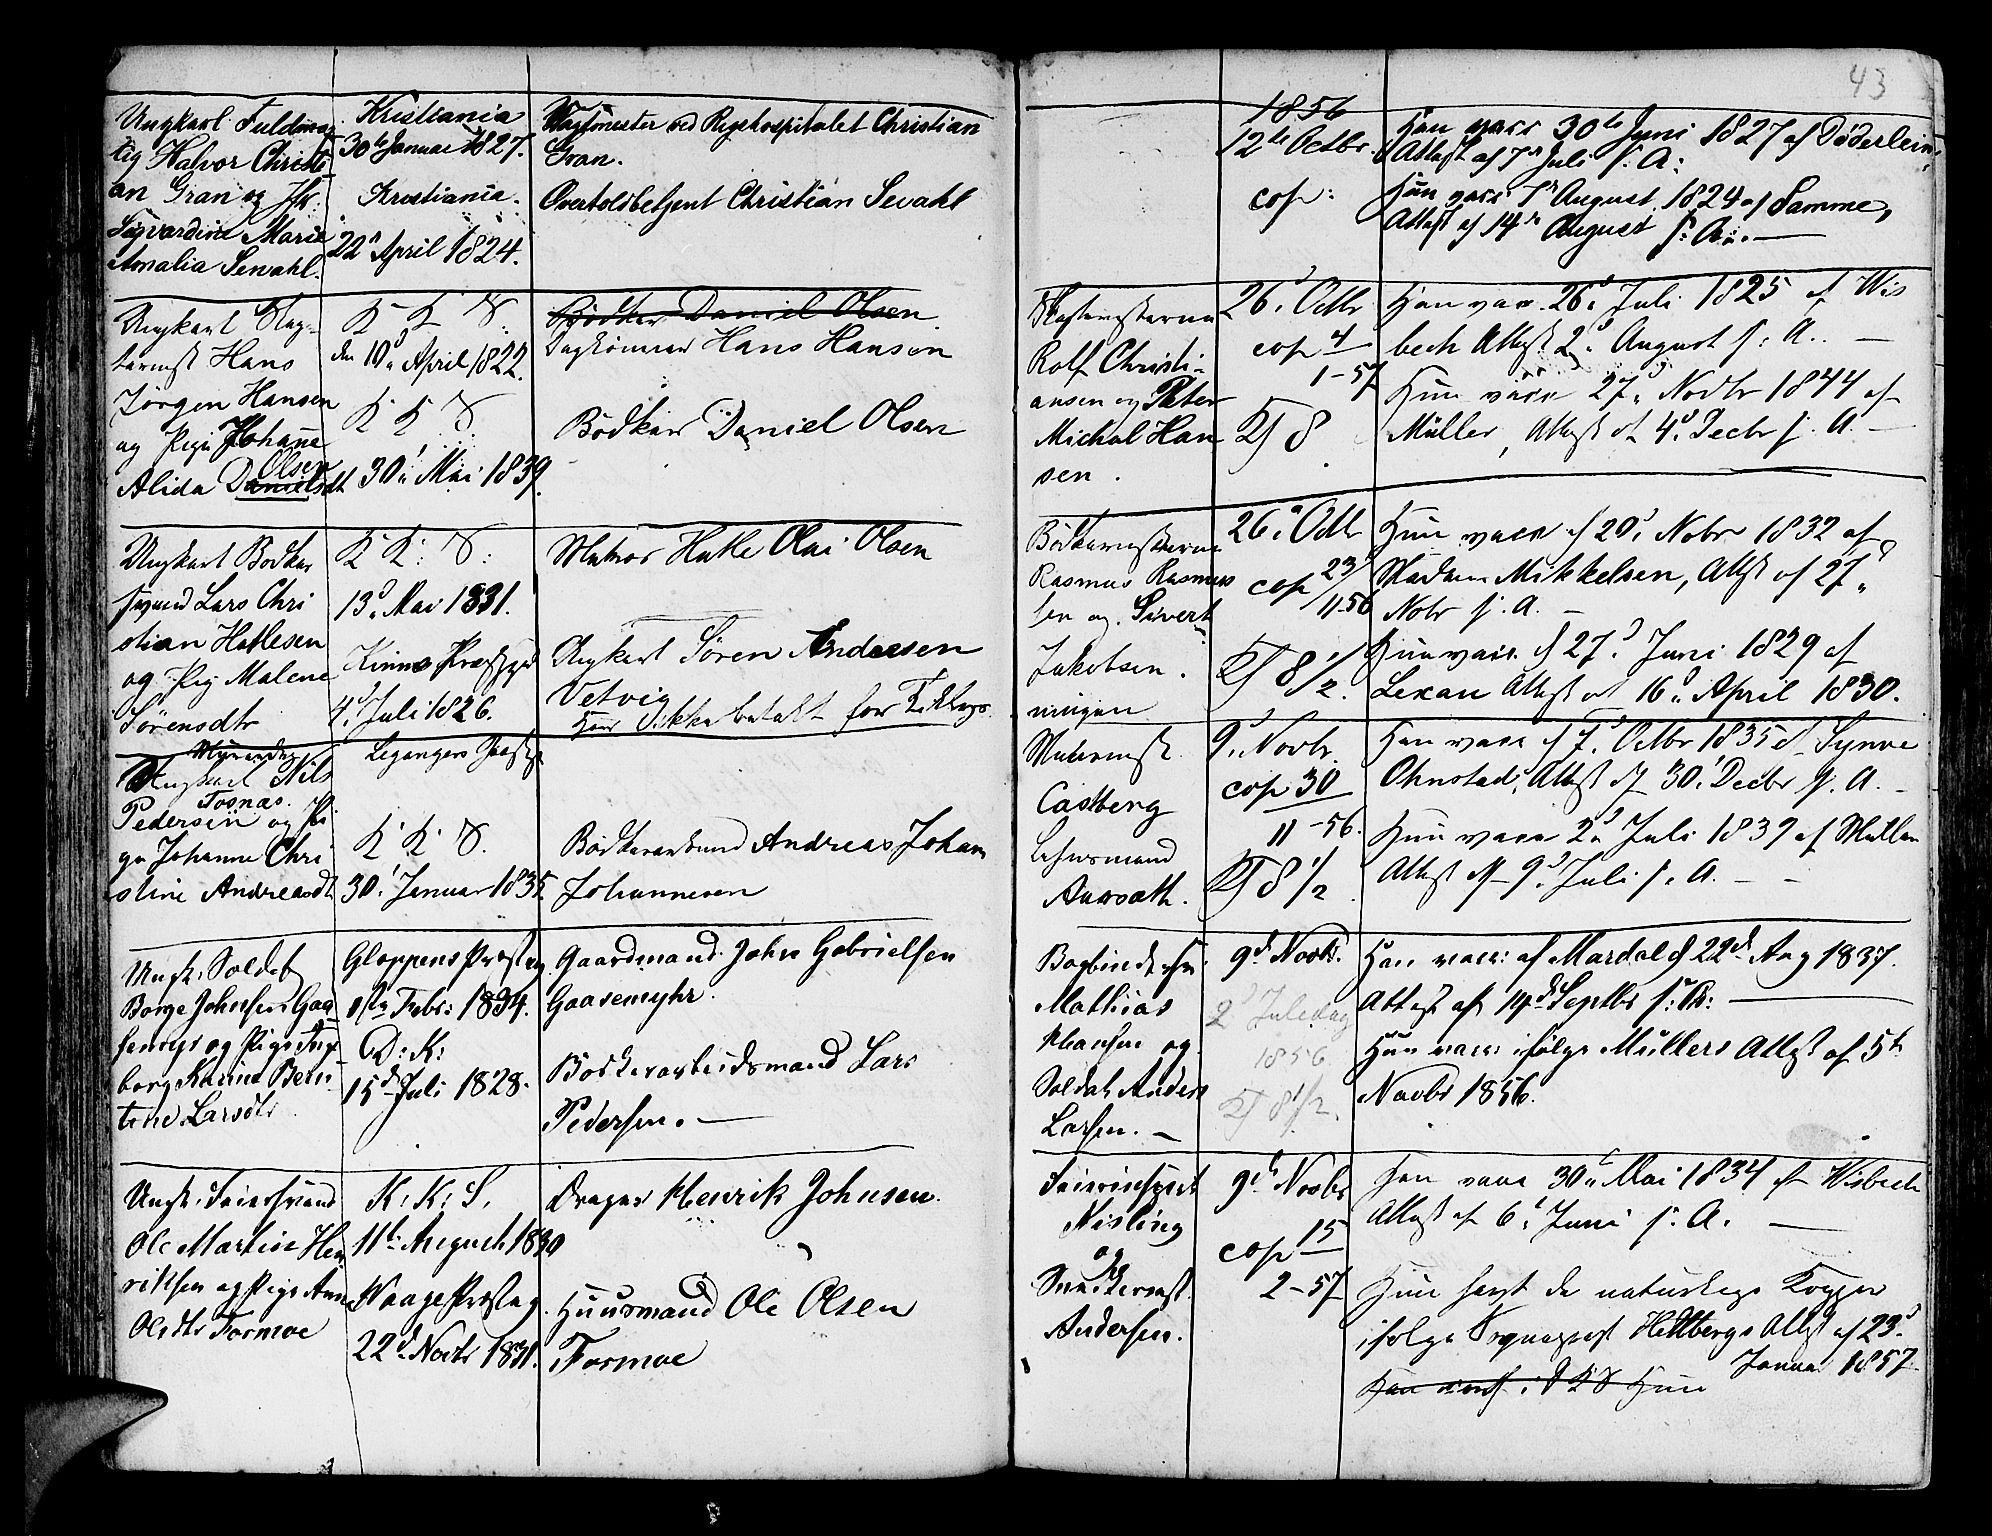 43
Ungkarl Fuldmæg
tig Halvor Christi
an Gran og Jfr.
Sigvardine Marie
Amalia Sewahl.
Kristiania
30te Januar 1827.
Kristiania.
22de April 1824.
Vagtmester ved Rigshospitalet Christian
Gran.
Overtoldbetjent Christian Sewahl
1856
12te Octbr.
cop:
Han vacc 30te Juni 1827 af Döderlein,
Attest af 7de Juli s: A:
Hun vacc. August 1824 af Samme,
Attest af 14de August s: A.
Ungkarl Slag-
termst Hans
Jørgen Hansen
og Pige Johanne
Olsen
Alida Danielsdt
K K S.
den 10d April 1822.
K K S
30. Mai 1839.
Bödker Daniel Olsen
Hans Hansen
Bödker Daniel Olsen
Slagtermesterne
Rolf Christi-
ansen og Peter
Michal Han
sen.
26d Octbr
cop 4
1-57
8
Han vacc. 26d Juli 1825 af Wis
bech Attest 2d August s. A.
Hun vacc 27d Novbr 1844 af
Müller, Attest af 4d Decbr s. A.
Ungkarl Bødker
svend Lars Chri
stian Hatlesen
og Pig Malene
Sörensdtr
K K. S.
13d Mai 1831.
Kinns Præstegd
4d Juli 1826.
Matros Hatle Olai Olsen
Ungkarl Sören Andersen
Vetvig
har ikke betalt for
Bödkermesterne
Rasmus Rasmus
sen og Sivert
Jakobsen.
26d Octbr
cop 23/
11-56
8 1/2.
Hun vacc af 20d Nobr 1832 af
Madam Mikkelsen, Attest af 27d
Nobr s. A.
Hun vacc. d 27d Juni 1829 af
Lexau Attest af 16d April 1830.
Ungkarl Nils
Pedersen og Pi
ge Johanne Chri
stine Andreasdt
Legangers Præstg
K K S.
30. Januar 1835.
Andreas Johan
Johannesen
Castberg
Lehnsmand
9d Novbr.
cop 30
11-56.
8 1/2
Han vacc d 7d Octbr 1835 af Synve
Ohnstad, Attest af 30. Decbr s. A.
Hun vacc 2d Juli 1839 af
Attest af 9d Juli s. A.
Ungk. Soldat
Børge Johnsen Gaa
semyr og Pige Inge
borg Karine Bern
tine Larsdtr
Gloppens Præsteg
Febr: 1834.
D: K:
15d Juli 1828.
Gaardmand John Gabrielsen
Gaasemyhr.
Bødkerarbeidsmand Lars
Pedersen.
Mathias
Hansen og
Soldat Anders
Larsen.
9d Novbr.
2d Juledag
1856
8 1/2.
Han vacc: af Mardal d 22d Aug 1837.
Attest af 14d Septbr s: A:
Hun vacc: ifølge Müllers Attest af 5te
Novbr 1856.
Ungk. Feiersvend
Ole Martin Hen
riksen og Pige Anne
Olsdtr Formoe
K: K: S.
11te August 1830
Waage Præsteg.
22d Novbr 1831.
Drager Henrik Johnsen.
Huusmand Ole Olsen
Formoe
Feierinspect
Nisling
og
Snedkermst.
Andersen.
9de Novbr
cop 15
2-57
Han vacc 30te Mai 1834 af Wisbech
Attest af 6d Juni s. A.
Hun havt de naturlige Kopper
ifølge Sognepræst Hedtbergs Attest af 23d
Januar 1857